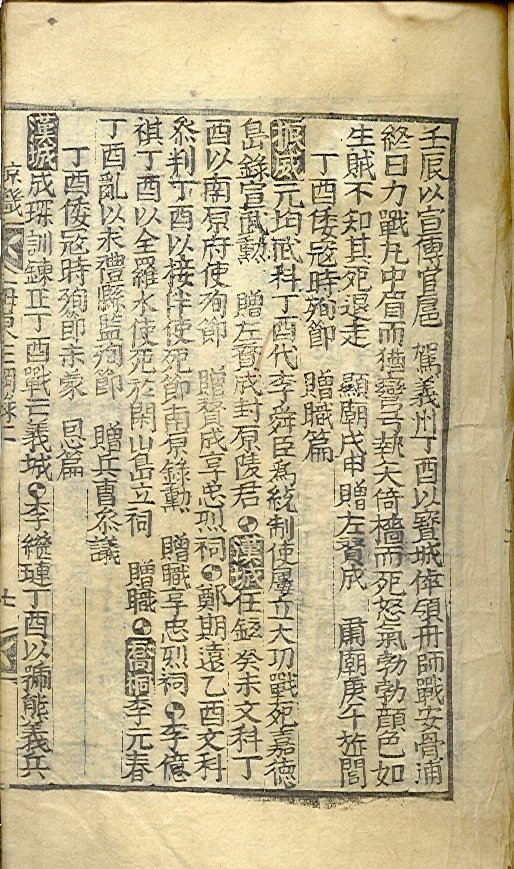 壬辰以宣傳官扈 駕義州丁酉以晉城倅領舟師戰安骨浦
終日力戰丸中眉而猶彎弓執矢倚檣而死怒氣勃勃顔色如
生賊不知其死退走 顯朝戊申贈左賛成 肅廟庚午旌閭
丁酉倭冦時殉節 贈職篇
振威元均武科丁酉代李舜臣爲統制使屢立大功戰死嘉德
島錄宣武勲 贈左賛成封原陵君 漢城任鉉癸未文科丁
酉以南原府使殉節 贈賛成享忠烈祠 鄭期遠乙酉文科
叅判丁酉以接伴使死節南原錄勲 贈職享忠烈祠 李億
祺丁酉以全羅水使死於閑山島立祠 贈職 喬桐李元春
丁酉亂以求禮縣監殉節 贈兵曹叅議
丁酉倭冦時殉節未蒙 恩篇
漢城成琾訓鍊正丁酉戰亡義城 李繼璉丁酉以獅熊義兵
京畿